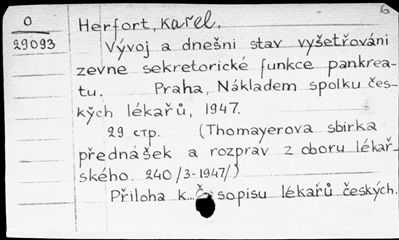 6
O
29093
Herfort, Karel.
Vývoj a dnešni stav vyšetřováni
zevne sekretorické funkce pankrea-
tu. Praha, Nákladem spolku čes-
kých lékařů, 1947.
29 стр. (Thomayerova sbirka
přednášek a rozprav z oboru lékař-
ského. 240/3-1947/)
Přiloha k sopisu lékařů českých.